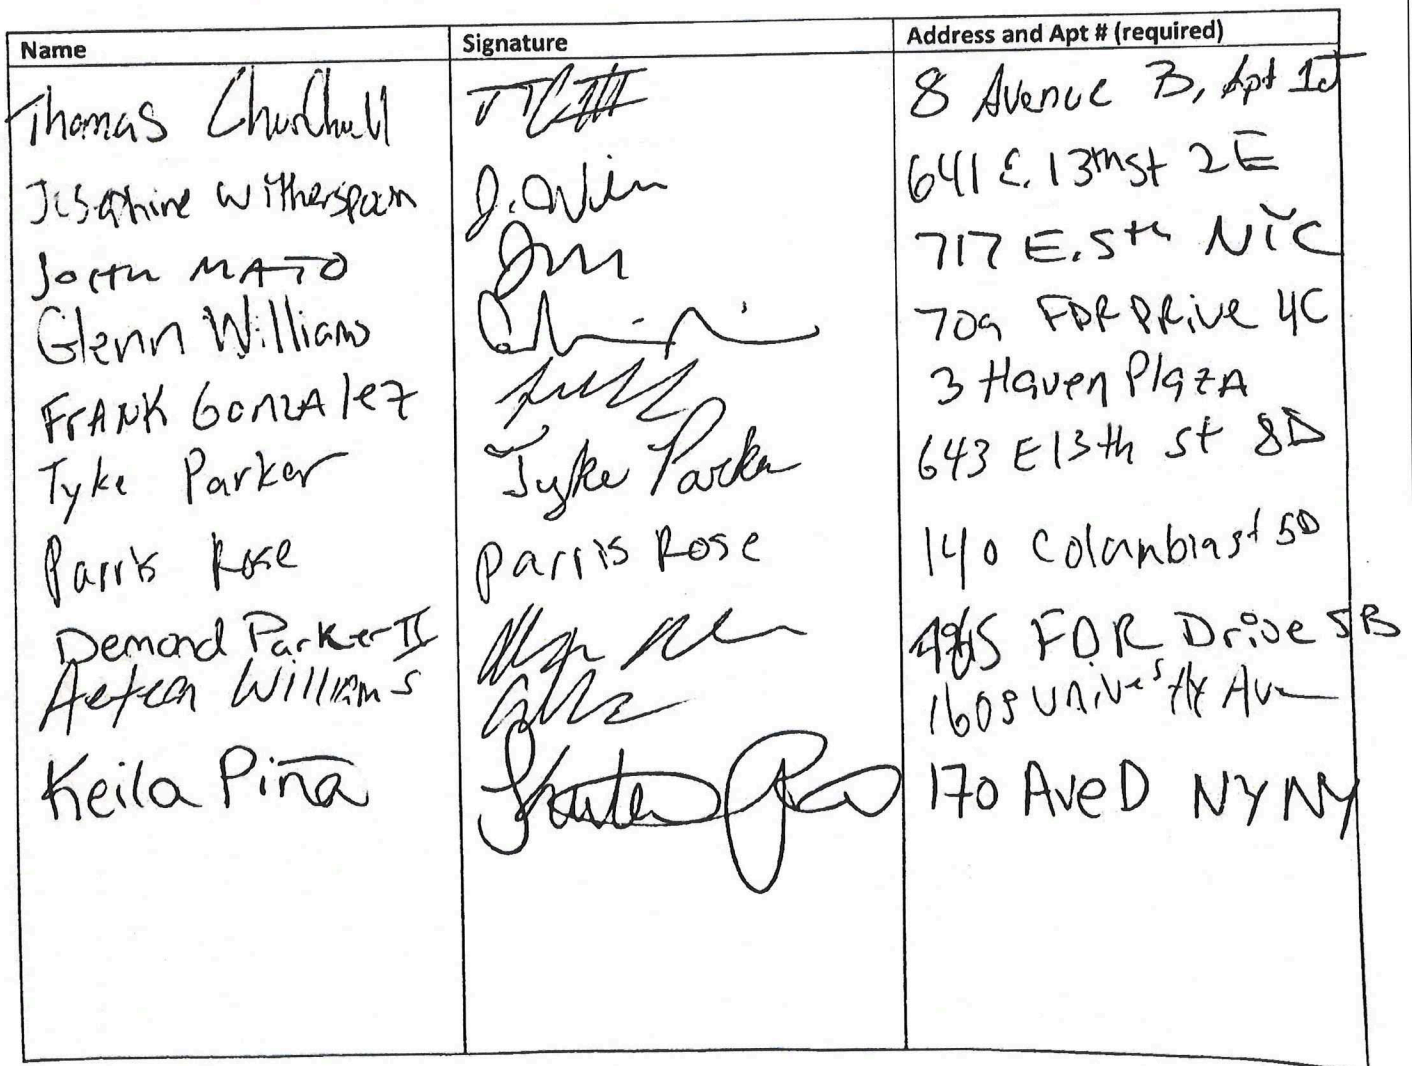 Name Signature Address and Apt # (required)
Thomas Churchull 8 Avenue B, Apt 1J
Josephine Witherspoon 641 E. 13th st 2E
MATO 717 E. 5th NYC
Glenn Williams 709 FDR DRive 4C
FrANK GonzAlez 3 Haven PlazA
Tyke Parker Tyke Parker 643 E 13th st 8D
Parris Rose Parris Rose 140 Columbia st 5D
Demond Parker II FDR Drive 5B
Williams University Ave
Keila Piña 170 Ave D NY NY